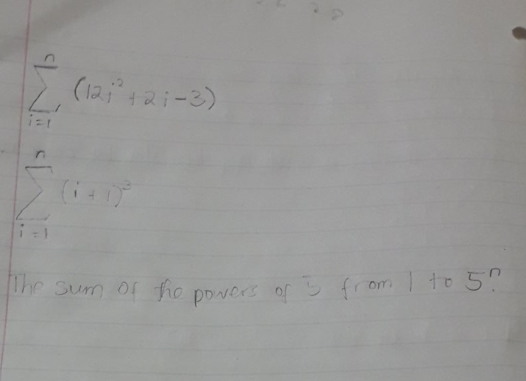 n
∑ (12i² + 2i - 3)
i=1
n
∑ (i + 1)³
i=1
The sum of the powers of 5 from 1 to 5ⁿ.